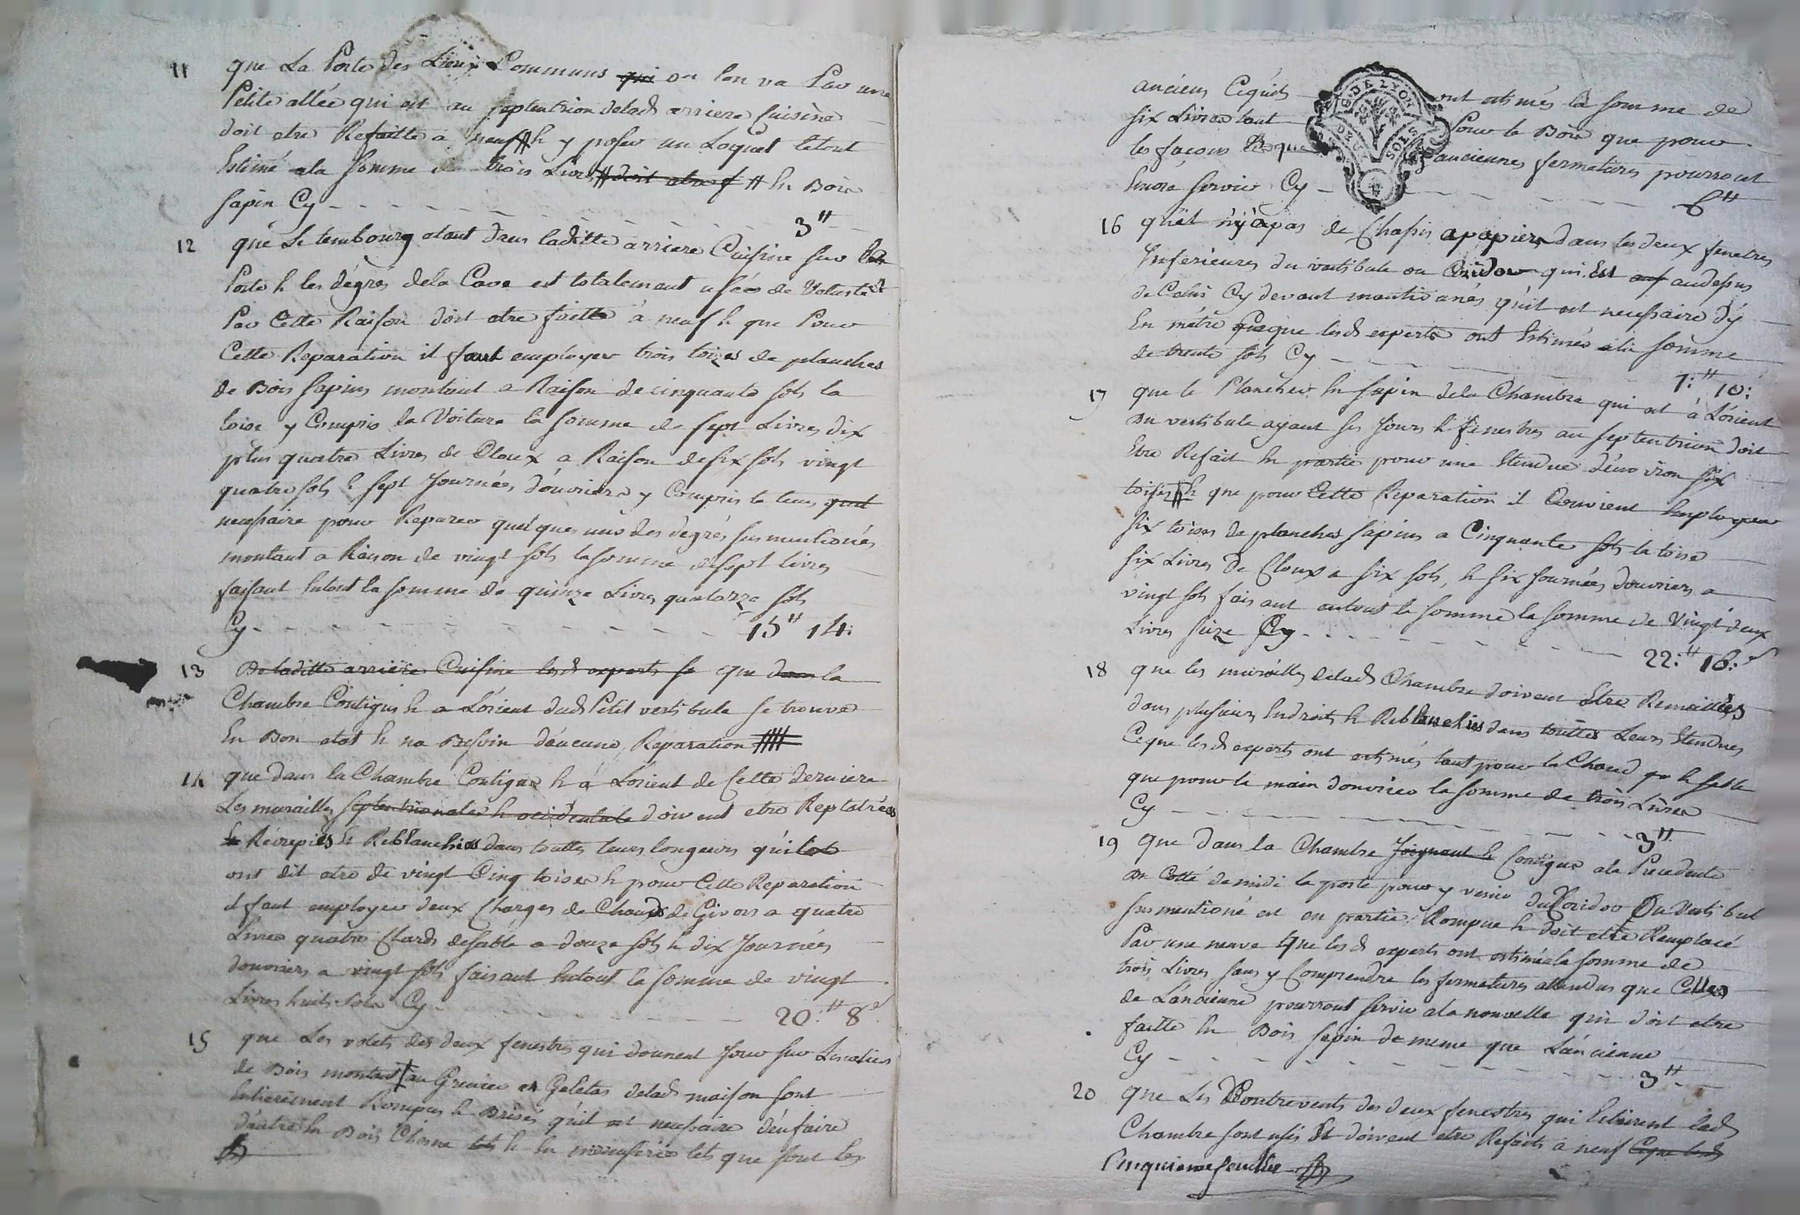 11 que La Porte des Lieux Communs qui ou lon va Par une
Petite allée qui est au septentrion delad arriere Cuisine
doit etre Refaitte a neuf & y poser un Loquet letout
Estimé ala somme de trois Livres doit etre f En Bois
sapin Cy 3 ₶
12 que Le tembourg etant dans laditte arriere Cuisine sur la
Porte & les dégrés dela Cave est totalement usée de Vetusté
Par Cette Raison doit etre faitte à neuf & que Pour
Cette Reparation il faut employer trois toizes de planches
de Bois sapins montant a Raison de cinquante sols la
toise y Compris la Voiture la somme de sept Livres dix
plus quatre Livres de Cloux a Raison de six sols vingt
quatre sols & sept Journées d'ouvriers y Compris le tems
necessaire pour Reparer quelques uns des dégrés sus mentionés
montant a Raison de vingt sols la somme de sept livres
faisant Entout la somme de quinze Livres quatorze sols
Cy 15 ₶ 14:
13 De laditte arriere Cuisine lesd experts se que dans la
Chambre Contiguë & a Lorient dud Petit vestibule se trouve
En Bon etat & na Besoin d'aucune Reparation
14 que dans la Chambre Contigue & à Lorient de Cette derniere
Les murailles septentrionales & occidentale doivent etre Replatrées
& Récrepies & Reblanchies dans touttes leurs longeurs qu'ils
ont dit etre de vingt Cinq toises & pour Cette Reparation
il faut employer deux Charges de Chaud de Givors a quatre
Livres quatre Chards de sable a douze sols & dix Journées
douvriers a vingt sols faisant Entout la somme de vingt
Livres huit sols Cy 20: ₶ 8 s
15 que Les volets des deux fenestres qui donnent Jour sur Lescalier
de Bois montant au Grenier et Galetas delad maison sont
Entierement Rompus & Brisés qu'il est necessaire d'en faire
d'autre En Bois Chesne & En menuserie tels que sont les
anciens Ce qu'ils ont estimés la somme de
six Livres tant Pour le Bois que pour
les façons anciennes fermetures pourront
Encore servir Cy 6 ₶
G. DE LYON
SOLS
16 qu'il n'y a pas de Chasis a papiers dans les deux fenetres
Inferieures du vestibule ou Coridor qui Est au dessus
de Celui Cy devant mentionnés qu'il est necessaire d'y
En métre Ce que lesd experts ont Estimés ala somme
de trente sols Cy 1: ₶ 10:
17 que le Plancher En sapin dela Chambre qui est à L'orient
du vestibule ayant ses Jours & fenestres au septentrion doit
Etre Refait En partie pour une Etendue d'environ six
toises & que pour Cette Reparation il Convient Employer
six toises de planches sapins a Cinquante sols la toise
six Livres de Cloux a six sols, & six Journées douvriers a
vingt sols faisant entout la somme la somme de Vingt deux
Livres seize Cy 22: ₶ 16: s
18 que les murailles delad Chambre doivent Etre Remaillées
dans plusieurs Endroits & Reblanchies dans touttes Leurs Etendues
Ce que lesd experts ont estimés tant pour la Chaud & sable
que pour la main douvrier la somme de trois Livres
Cy 3 ₶
19 que dans la Chambre Joignant & Contigue ala Précedente
du Cotté de midi la porte pour y venir du Coridor Du Vestibul
susmentioné est en partie Rompue & doit etre Remplacé
Par une neuve que lesd experts ont estimé la somme de
trois Livres sans y Comprendre les fermetures attendus que Celles
de L'ancienne pourront servir ala nouvelle qui doit etre
faitte En Bois sapin de meme que L'ancienne
Cy 3 ₶
20 que Les Contrevents des deux fenestres qui Eclairent lad
Chambre sont usés Et doivent etre Refaits à neuf Ce que lesd
Cinquieme feuille